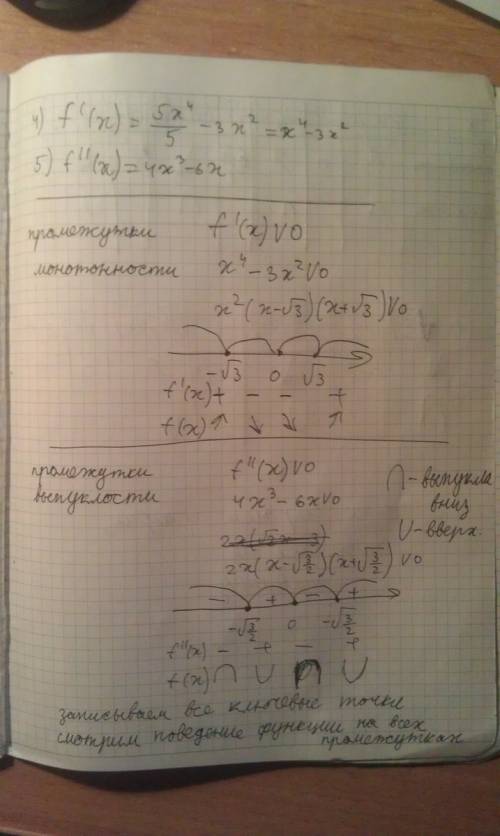 4) f'(x) = 5x⁴/5 - 3x² = x⁴ - 3x²
5) f''(x) = 4x³ - 6x
промежутки f'(x) V 0
монотонности x⁴ - 3x² V 0
x²(x-√3)(x+√3) V 0
-√3 0 √3
f'(x) + - - +
f(x) ↑ ↘ ↘ ↑
промежутки f''(x) V 0
выпуклости 4x³ - 6x V 0
∩ - выпукла вниз
∪ - вверх.
2x(x-√3/2)(x+√3/2) V 0
- + - +
-√3/2 0 -√3/2
f''(x) - + - +
f(x) ∩ ∪ ∩ ∪
записываем все ключевые точки
смотрим поведение функции на всех
промежутках